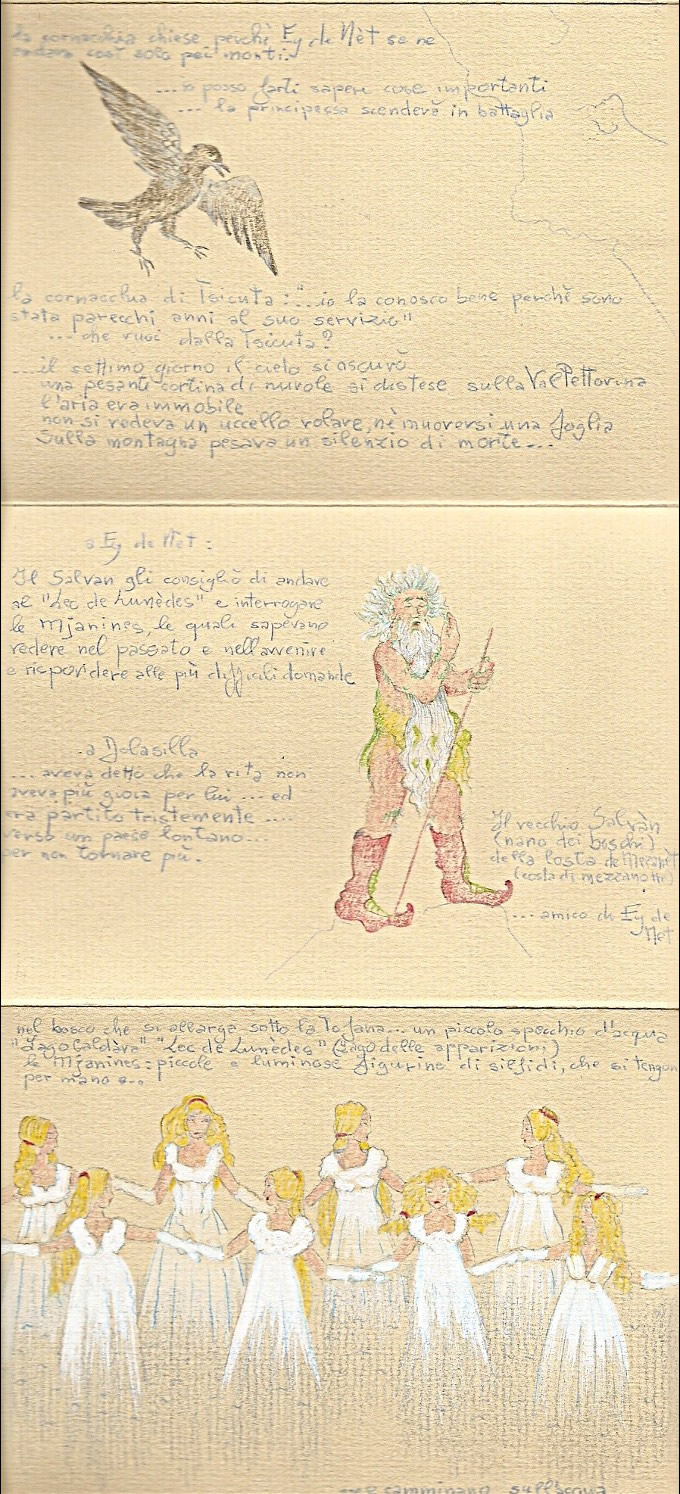 la cornacchia chiese perchè Ey de Nèt se ne
andava così solo pei monti.
...io posso farti sapere cose importanti
... la principessa scenderà in battaglia
la cornacchia di Tsicuta: "...io la conosco bene perchè sono
stata parecchi anni al suo servizio"
... che vuoi dalla Tsicuta?
...il settimo giorno il cielo si oscurò
una pesante cortina di nuvole si distese sulla Val Pettorina
l'aria era immobile
non si vedeva un uccello volare, nè muoversi una foglia
Sulla montagna pesava un silenzio di morte...
a Ey de Net:
Il Salvan gli consigliò di andare
al "Lec de Lunèdes" e interrogare
le Mjanines, le quali sapevano
vedere nel passato e nell'avvenire
e rispondere alle più difficili domande
a Dolasilla
... aveva detto che la vita non
aveva più gioia per lui ... ed
era partito tristemente ....
verso un paese lontano...
per non tornare più.
Il vecchio Salvàn
(nano dei boschi)
della Costa de Mesanèt
(costa di mezzanotte)
... amico di Ey de
Net
nel bosco che si allarga sotto la Tofana... un piccolo specchio d'acqua
"Lec de Lunèdes" (Lago delle apparizioni)
le Mjanines: piccole e luminose figurine di silfidi, che si tengon
per mano e..
...e camminano sull'acqua